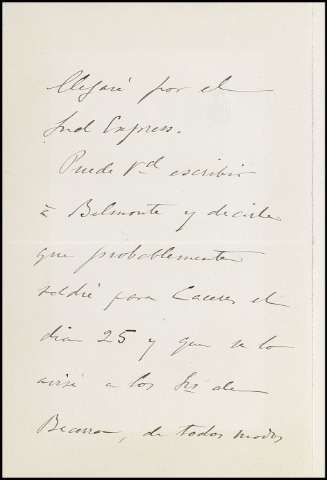 Llegaré por el
Sud Express.
Puede Vd escribir
á Belmonte y decirle
que probablemente
saldré para Caceres el
dia 25 y que se lo
avisé a los Sres de
Becerra, de todos modos